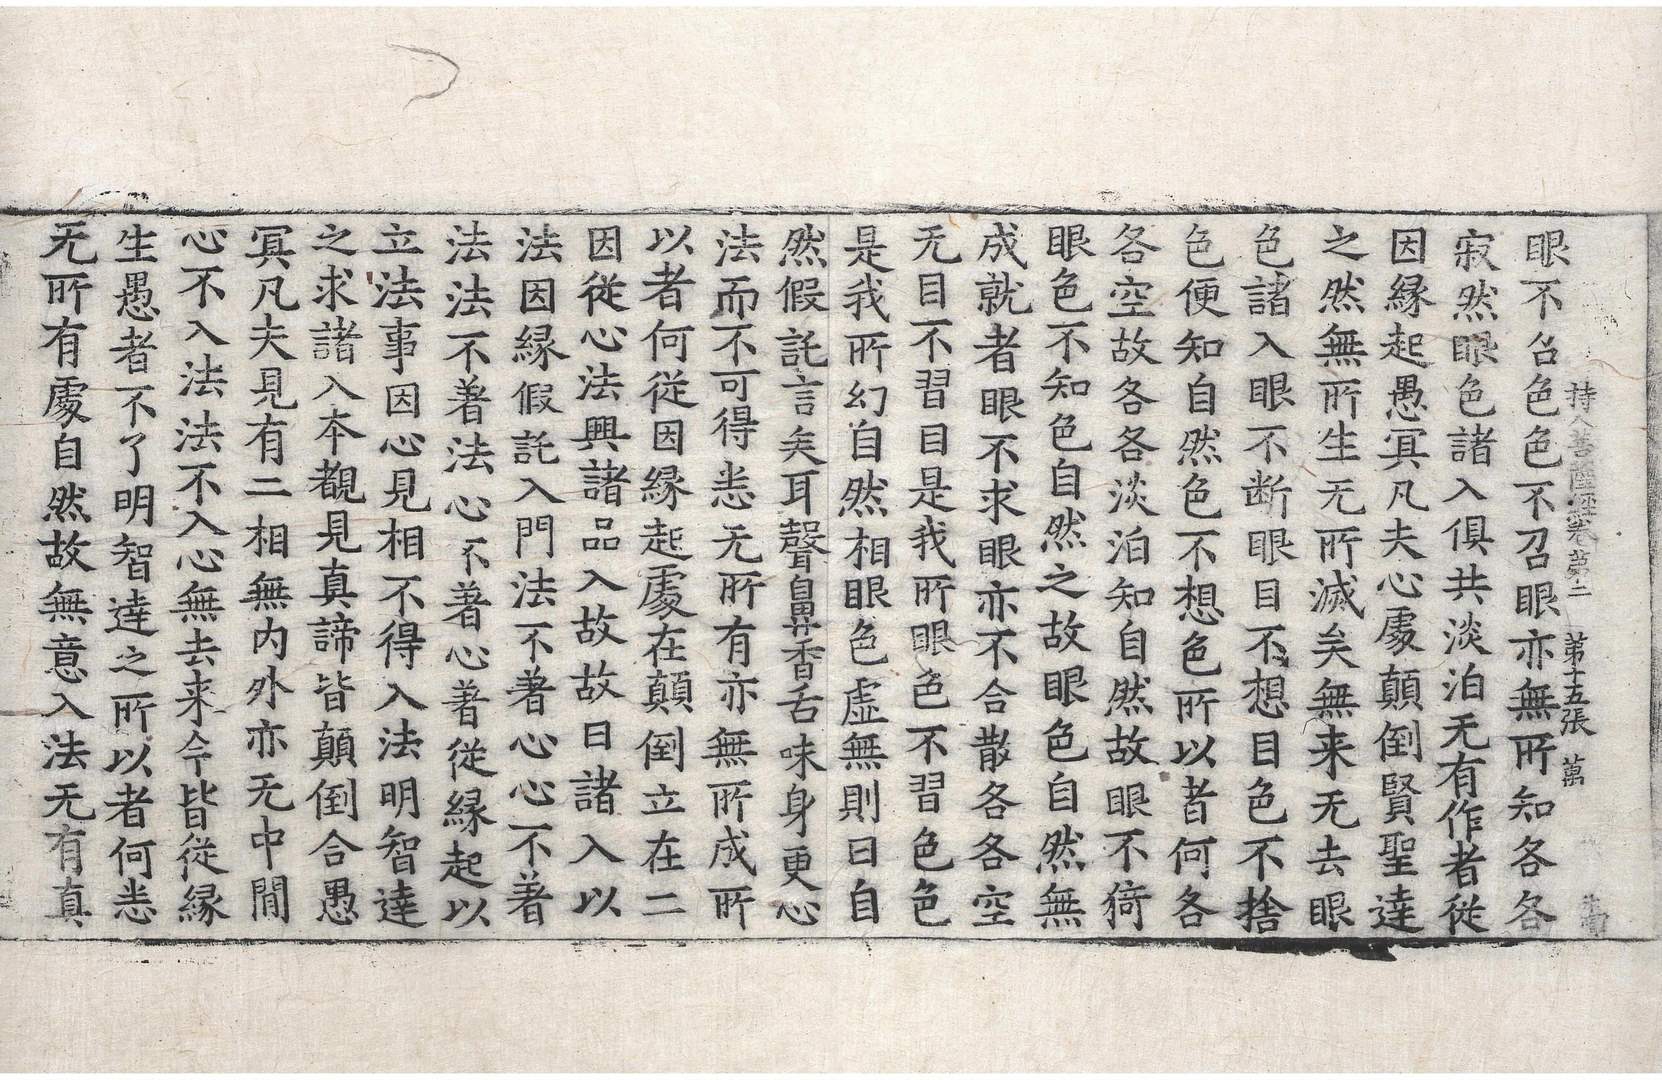 持人菩薩經卷第二　第十五張　萬
眼不召色色不召眼亦無所知各各
寂然眼色諸入俱共淡泊无有作者從
因緣起愚冥凡夫心處顛倒賢聖達
之然無所生无所滅矣無来无去眼
色諸入眼不断眼目不想目色不捨
色便知自然色不想色所以者何各
各空故各各淡泊知自然故眼不猗
眼色不知色自然之故眼色自然無
成就者眼不求眼亦不合散各各空
无目不習目是我所眼色不習色色
是我所幻自然相眼色虛無則曰自
然假託言矣耳聲鼻香舌味身更心
法而不可得悉无所有亦無所成所
以者何從因緣起處在顛倒立在二
因從心法興諸品入故故曰諸入以
法因緣假託入門法不著心心不著
法法不著法心不著心著從緣起以
立法事因心見相不得入法明智達
之求諸入本覩見真諦皆顛倒合愚
冥凡夫見有二相無内外亦无中間
心不入法法不入心無去来今皆從緣
生愚者不了明智達之所以者何悉
无所有處自然故無意入法无有真